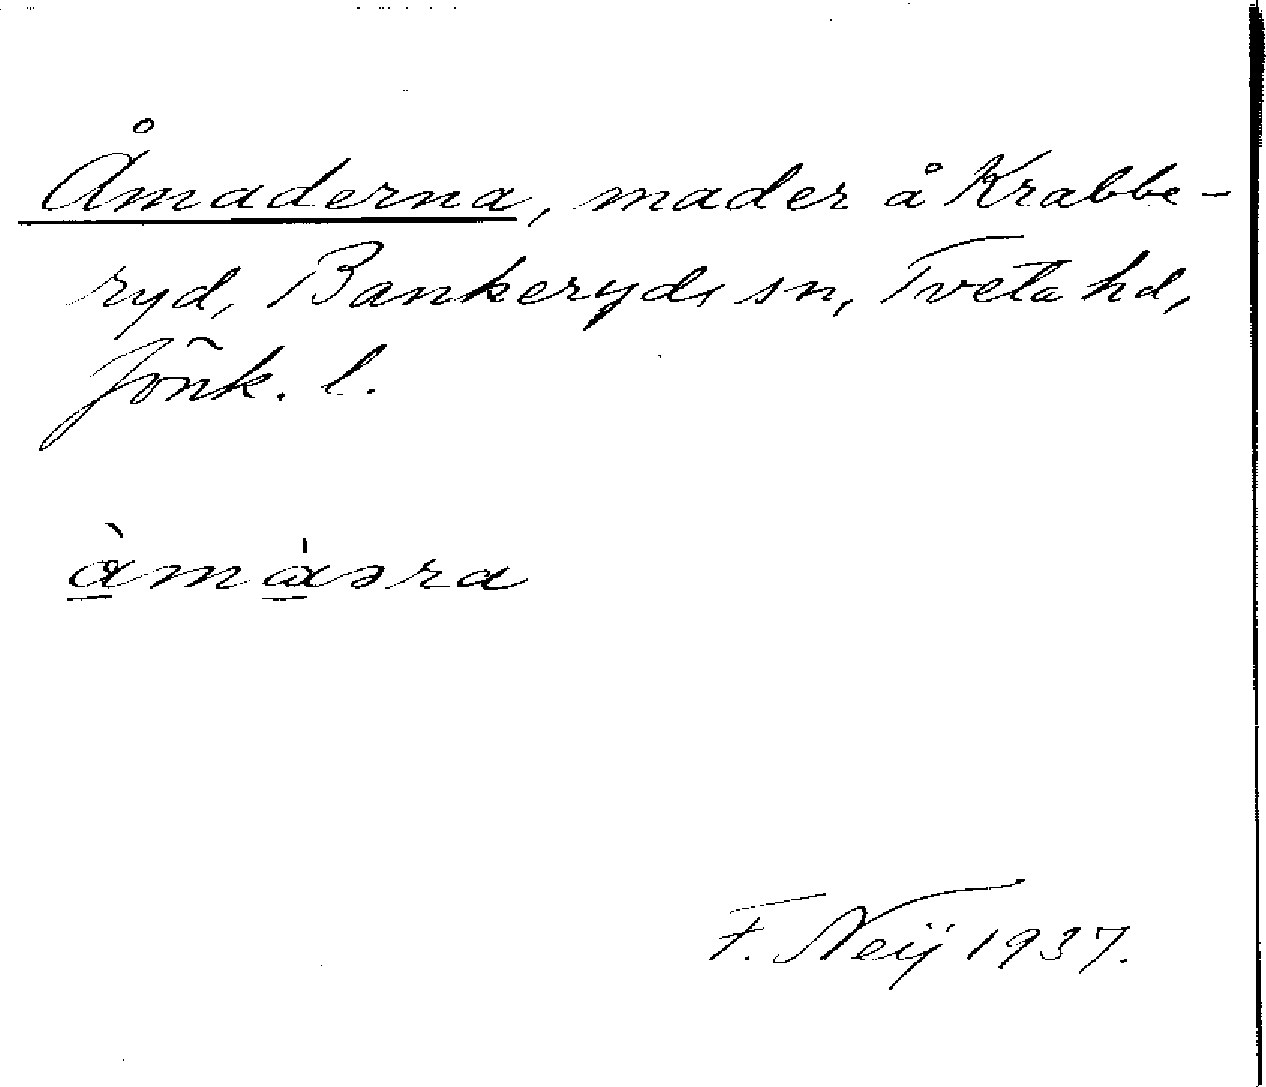 Åmaderna, mader å Krabbe-
ryd, Bankeryds sn, Tveta hd,
Jönk. l.
àmásra
F. Neij 1937.